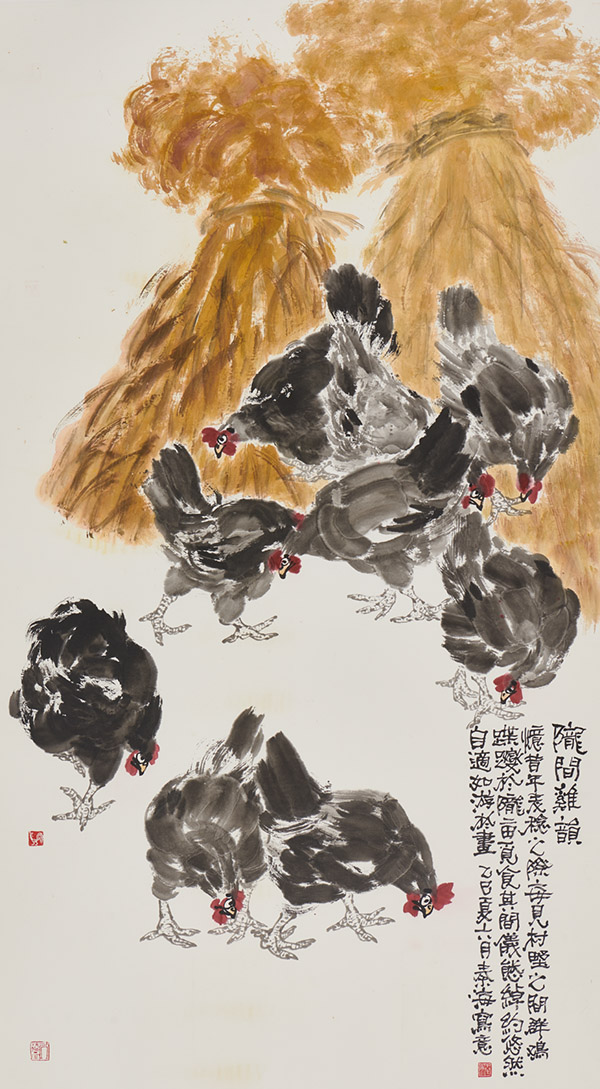 隴間雞韻
憶昔年麦稔之際每見村野之間群
蹀躞於隴亩覓食其間儀態綽約悠然
自適如游於畫 乙巳夏六月秦海寫意